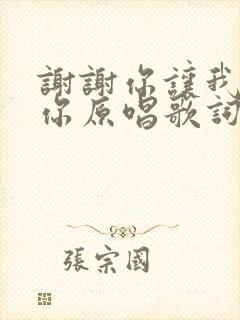 謝謝你讓我
你原唱歌詞
張宗國